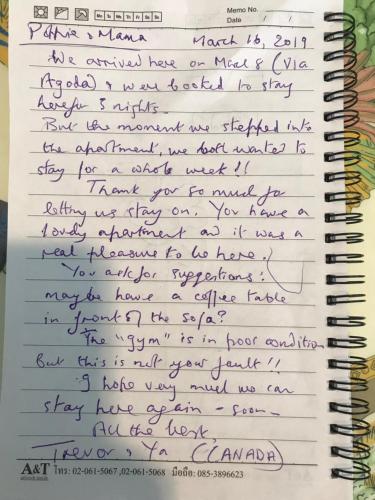 Memo No.
Mo Tu We Th Fr Sa Su
Date / /
Poppie & Mama March 16, 2019
We arrived here on March 8 (via
Agoda) & were booked to stay
here for 3 nights.
But the moment we stepped into
the apartment, we both wanted to
stay for a whole week!!
Thank you so much for
letting us stay on. You have a
lovely apartment and it was a
real pleasure to be here.
You ask for suggestions:
maybe have a coffee table
in front of the sofa?
The "gym" is in poor condition
But this is not your fault!!
I hope very much we can
stay here again - soon -
All the best,
Trevor & Ya (CANADA)
A&T
โทร: 02-061-5067 ,02-061-5068 มือถือ: 085-3896623